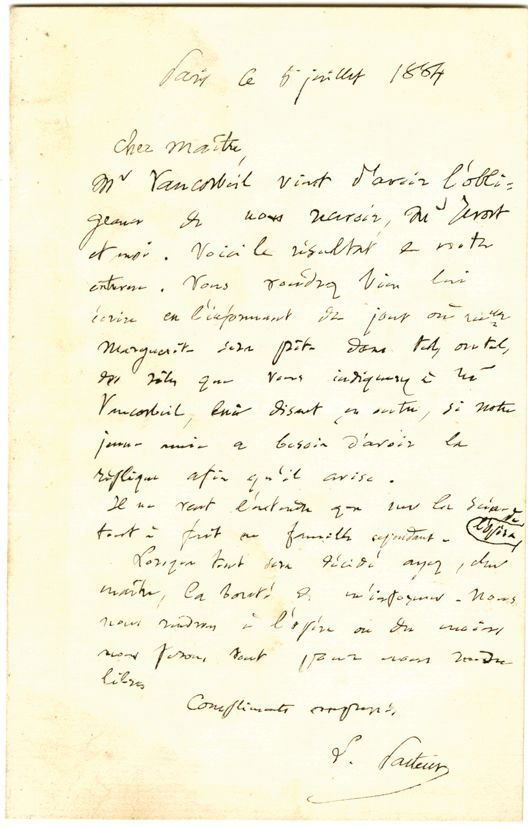 Paris le 5 juillet 1884
Cher maître,
Mr Vaucorbeil vient d'avoir l'obli-
geance de nous recevoir, Mr
et moi. Voici le résultat de notre
entrevue. Vous voudrez bien lui
écrire en l'informant du jour où
Marguerite sera prête dans tels ou tels
des rôles que vous indiquerez à Mr
Vaucorbeil, lui disant en outre, si notre
jeune amie a besoin d'avoir la
réplique afin qu'il avise.
Il ne veut l'entendre que sur la scène de
l'Opéra
tout à fait en famille cependant.
Lorsque tout sera décidé ayez, cher
maître, la bonté de m'informer. Nous
nous rendrons à l'Opéra ou du moins
nous ferons tout pour nous rendre
libres
Compliments empressés,
L. Pasteur